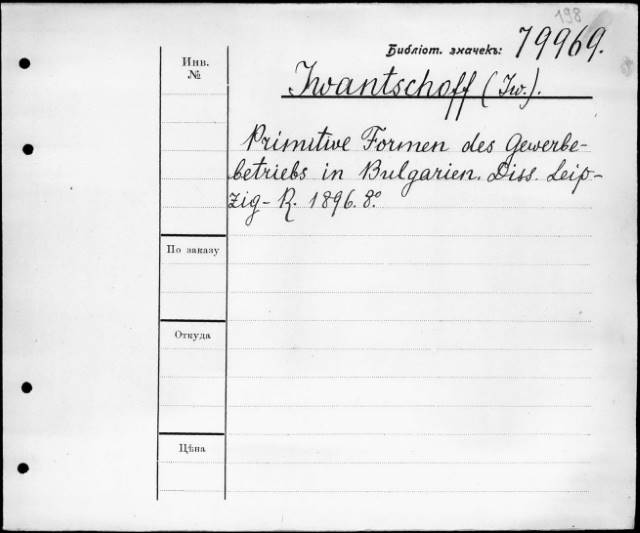 198
Библіот. значекъ: 79969.
Инв.
№
Iwantschoff (Iw.).
Primitive Formen des Gewerbe-
betriebs in Bulgarien. Diss. Leip-
zig-R. 1896. 8°.
По заказу
Откуда
Цѣна